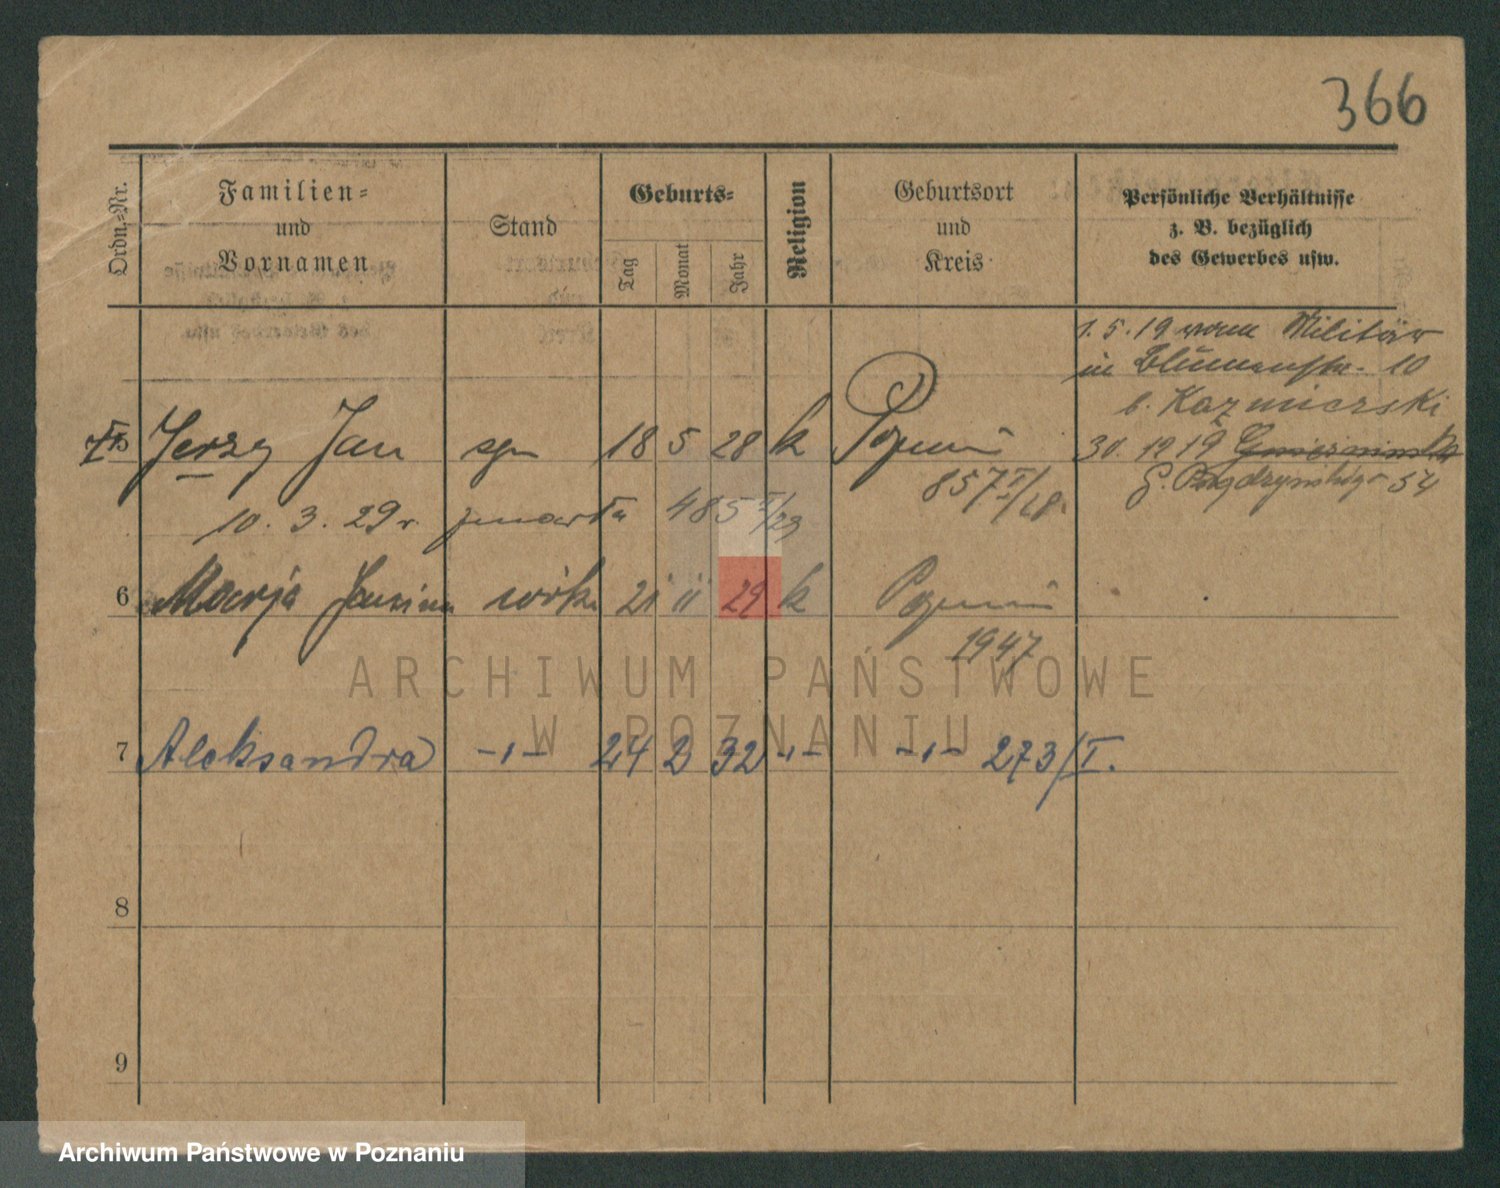 366
Ordn.-Nr.
Familien-
und
Vornamen
Stand
Geburts-
Tag
Monat
Jahr
Religion
Geburtsort
und
Kreis
Persönliche Verhältnisse
z. B. bezüglich
des Gewerbes usw.
1.5.19 vom Militär
in Blumenstr. 10
b. Kazmierski
Jerzy Jan syn 18 5 28 k Poznań 30. 12 19
54
10. 3. 29 r. zmarła 485
6 Marja Janina 21 11 29 k Poznań
1947
ARCHIWUM PAŃSTWOWE
W POZNANIU
7 Aleksandra -"- 24 2 32 -"- -"- 273/I.
8
9
Archiwum Państwowe w Poznaniu